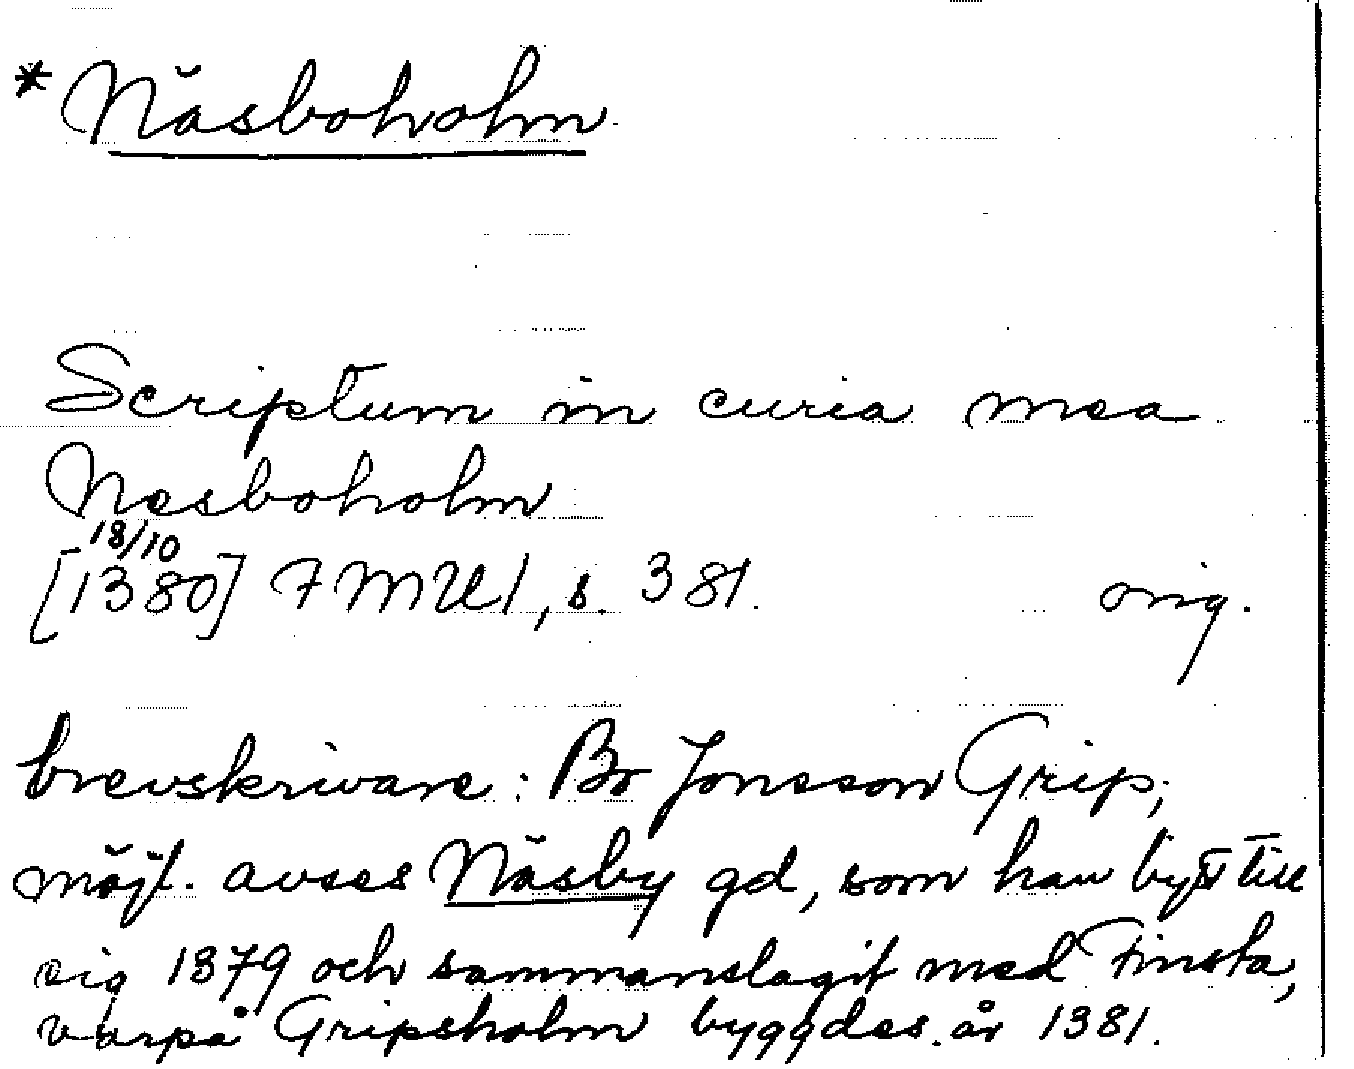 * Näsboholm
Scriptum in curia mea
Nesboholm
18/10
[1380] FMU 1, s. 381. orig.
brevskrivare: Bo Jonsson Grip;
möjl. avses Näsby gd, som han bytt till
sig 1379 och sammanslagit med Finsta,
varpå Gripsholm byggdes år 1381.